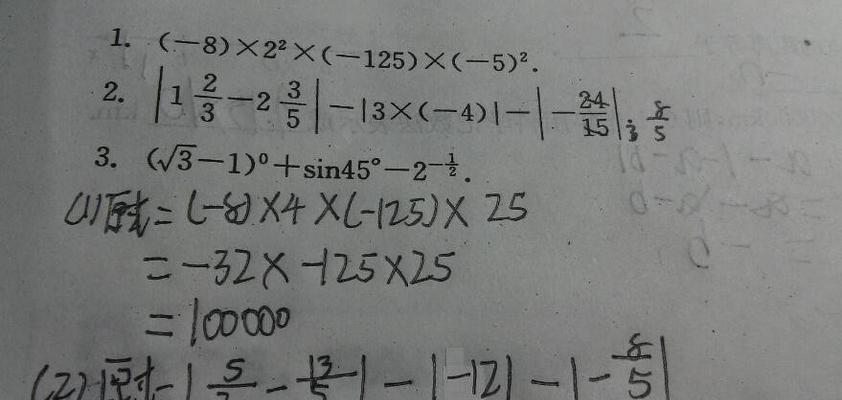 1. (−8)×2²×(−125)×(−5)².
2. |1 2/3 − 2 3/5| − |3×(−4)| − |−24/15|; 8/5
3. (√3−1)⁰+sin45°−2^(−1/2).
(1)原式=(-8)×4×(-125)×25
=-32×-125×25
=100000
(2)原式=|5/3-13/5|-|-12|-|-8/5|